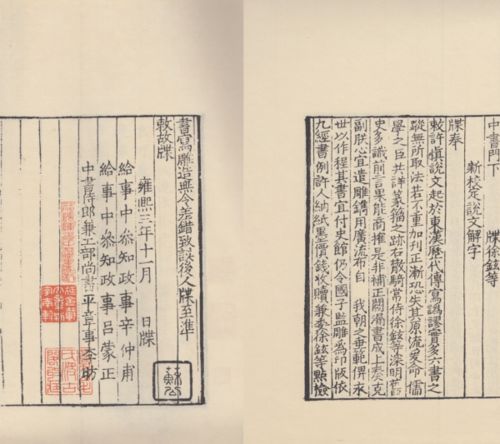 中書門下　牒徐鉉等
新校定說文解字
牒奉
敕許慎說文起於東漢歷代傳寫譌謬實多六書之
蹤無所取法若不重加刊正漸恐失其原流爰命儒
學之臣共詳篆籀之跡右散騎常侍徐鉉等深明舊
史多識前言果能商搉是非補正闕漏書成上奏克
副朕心宜遣雕鐫用廣流布自我朝之垂範俾永
世以作程其書宜付史館仍令國子監雕為印版依
九經書例許人納紙墨價錢收贖兼委徐鉉等點檢
書寫雕造無令差錯致誤後人牒至準
敕故牒
雍熙三年十一月　日牒
給事中參知政事辛仲甫
給事中參知政事呂蒙正
中書侍郎兼工部尚書平章事李昉